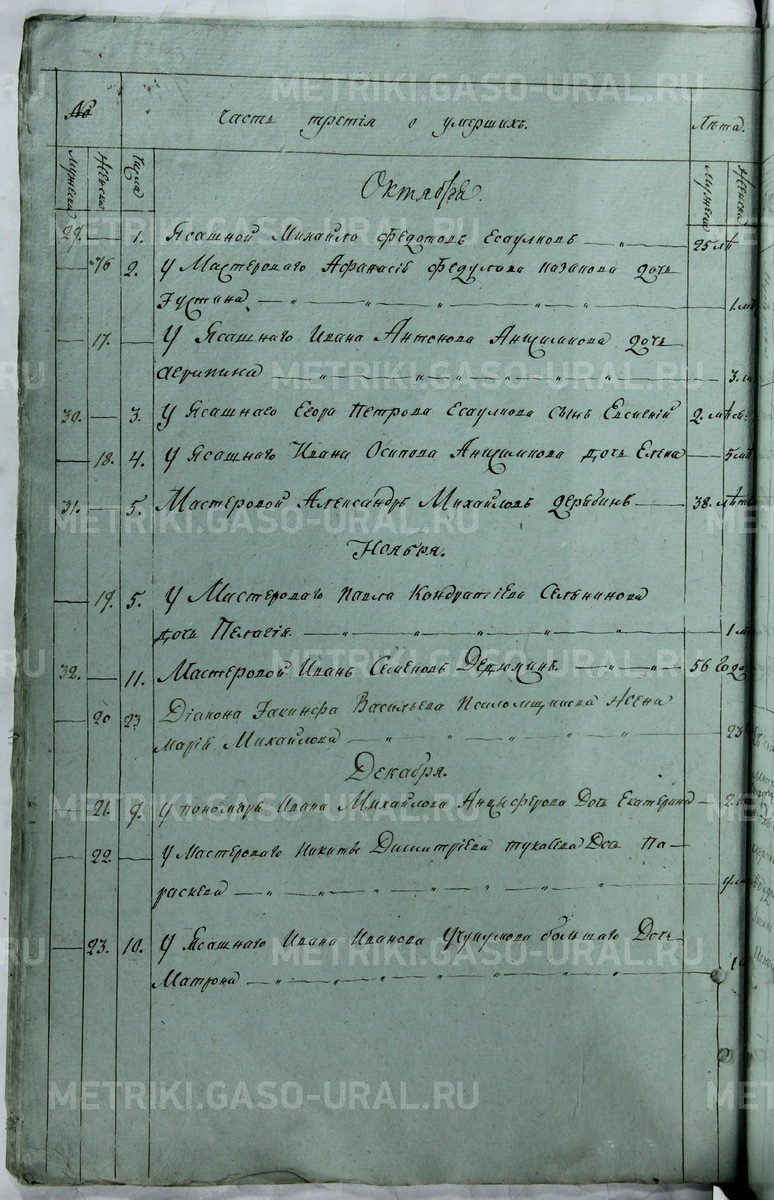 № Часть третія о умершихъ. Лѣта.
Мужеска Женска Числа Мужеска Женска
Октября.
29. 1. Ясашной Михайло Федотовъ Есаулковъ 25 лѣ
16 2. У Мастероваго Афанасіе Федулова Казакова дочь
Іустина 1. лѣ
17. У Ясашнаго Ивана Антонова Анцыпкова дочь
Агрипина 3.
30. 3. У Ясашнаго Егора Петрова Есаулкова сынъ Евсигній 2.
18. 4. У Ясашнаго Ивана Осипова дочь Елена 5
31. 5. Мастеровой Александръ Михайловъ Дерябинъ 38. лѣт
Ноября.
19. 5. У Мастероваго Павла Кондратіева Селянинова
дочь Пелагія 1
32. 11. Мастеровой Иванъ Семеновъ Дедюхинъ 56 годо
20 23 Діакона Іакинфа Васильева Псаломщикова жена
Марія Михайлова 23
Декабря.
21. 9. У пономаря Ивана Михайлова Анцыферова Дочь Екатерина 2.
22. У Мастероваго Никиты Димитріева Тукачева Дочь Па-
раскева
23. 10. У Ясашнаго Ивана Иванова большаго Дочь
Матрона 1
METRIKI.GASO-URAL.RU